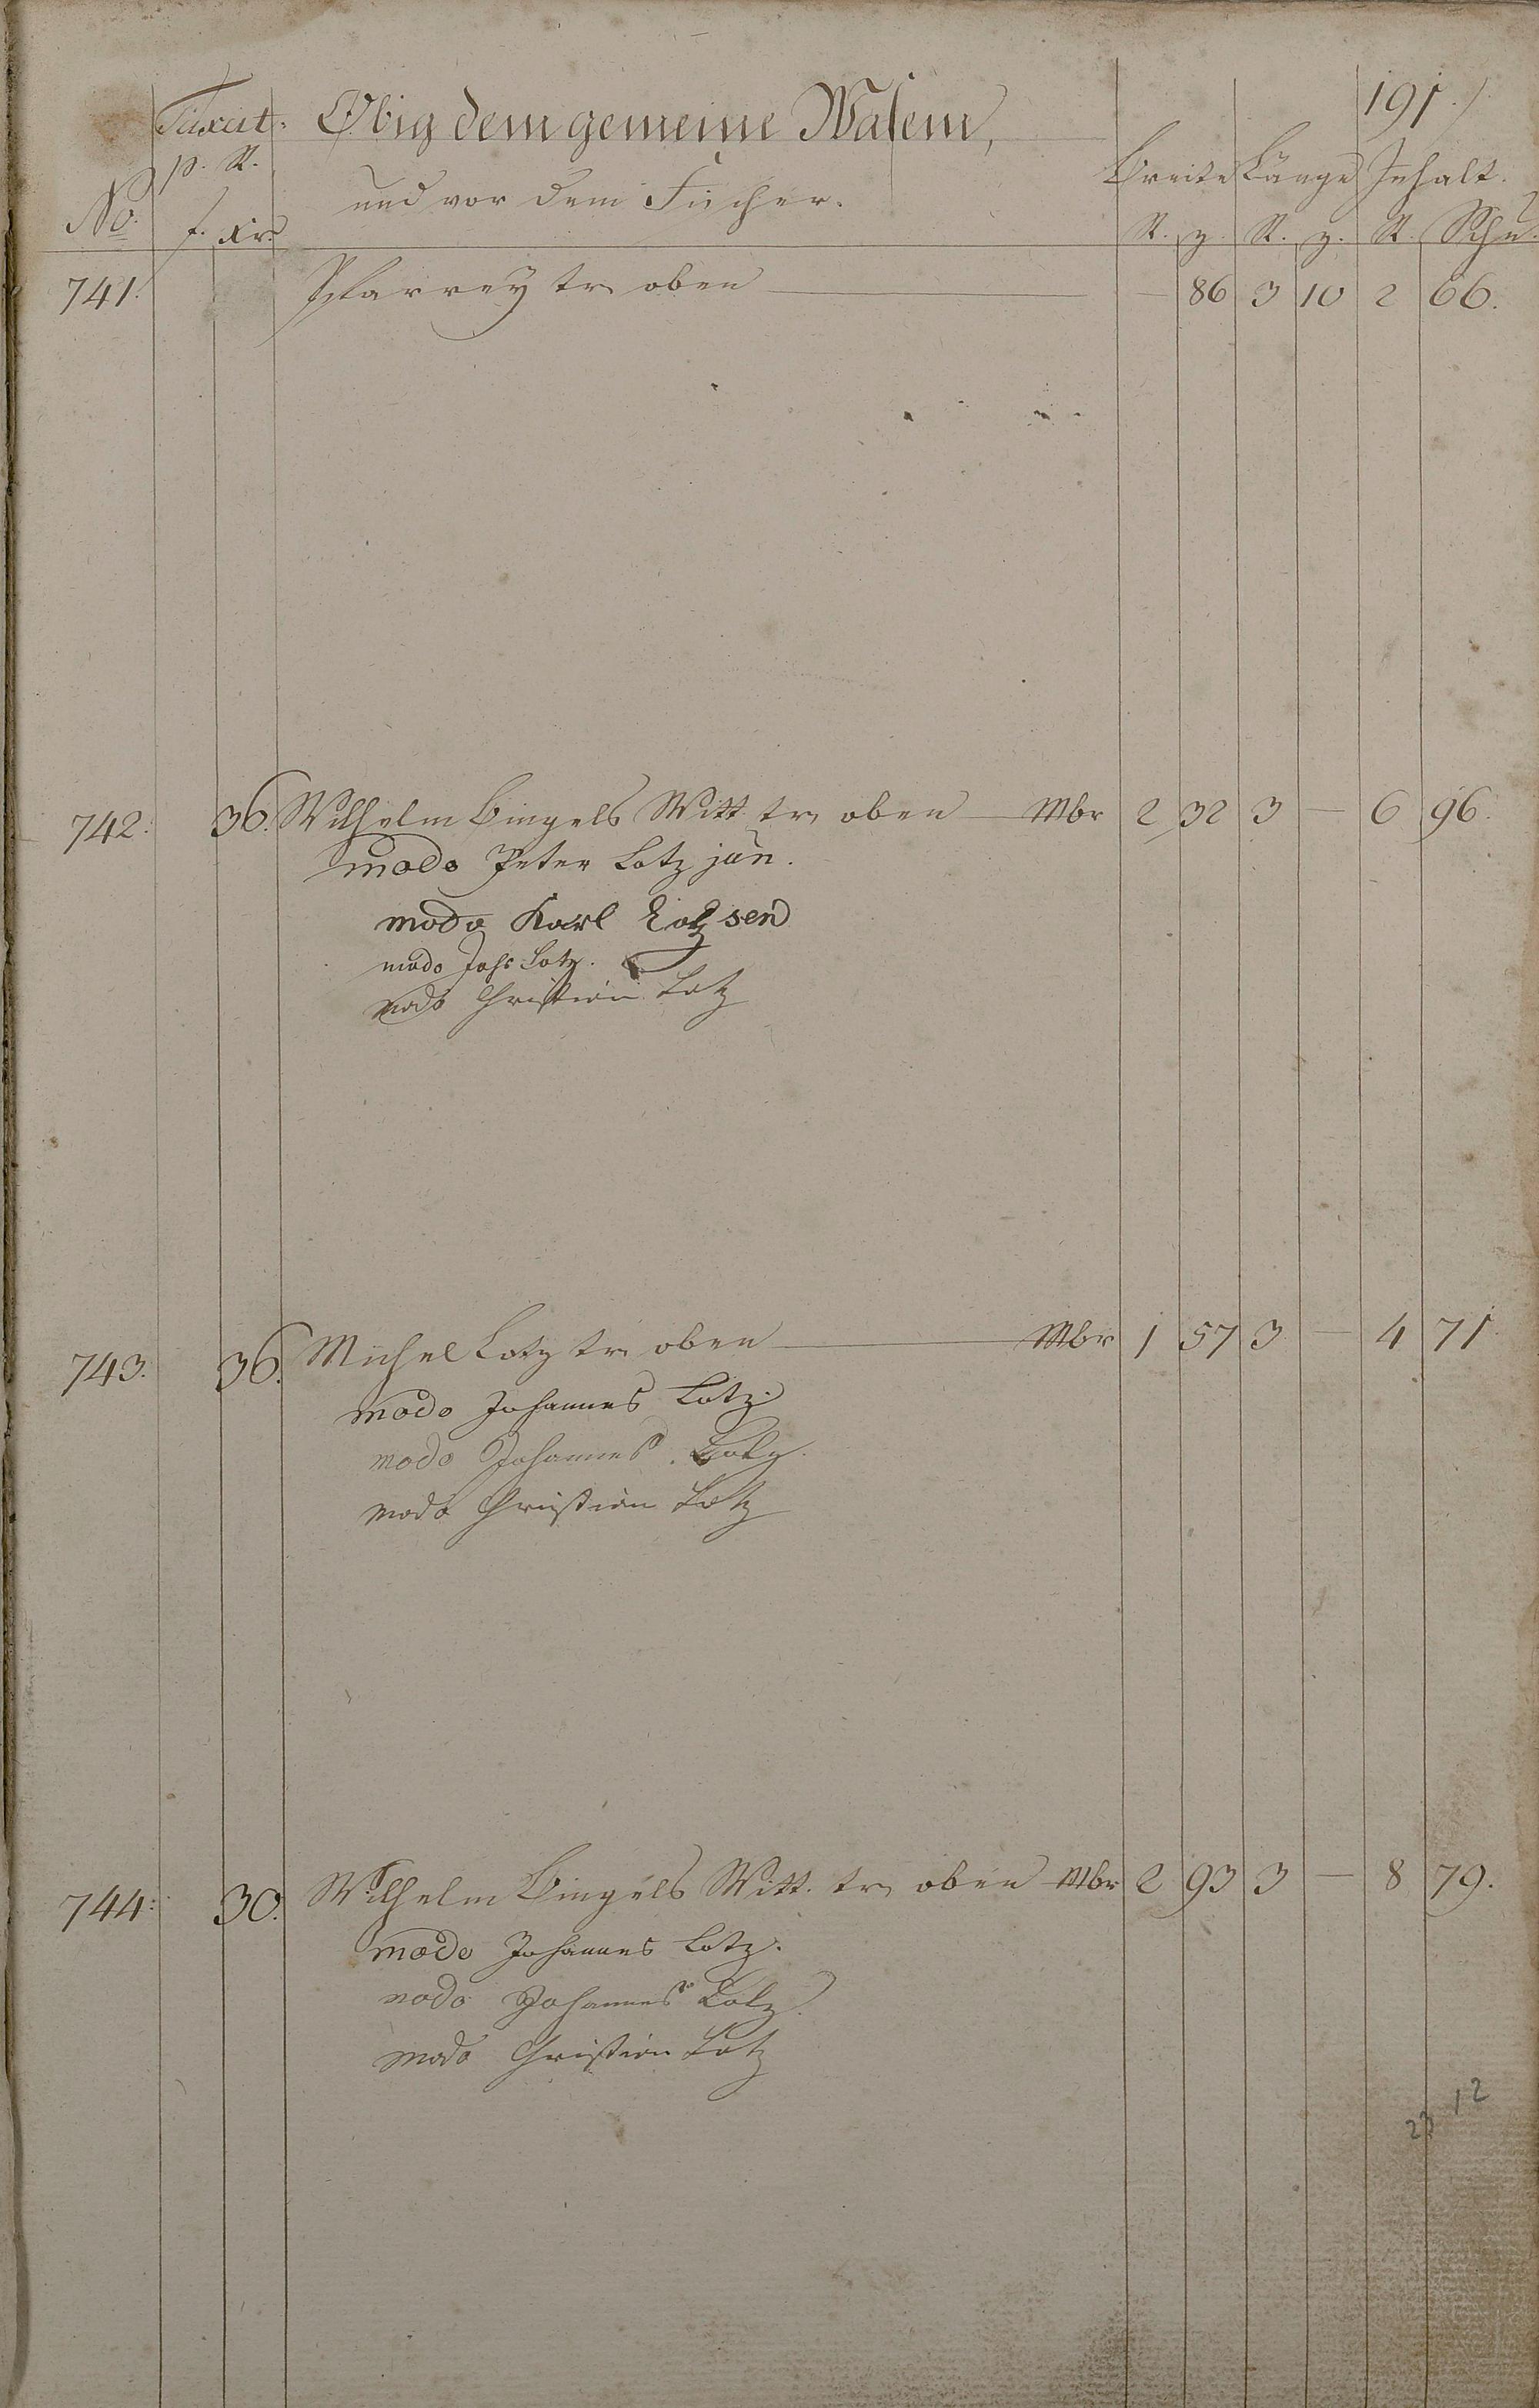 191.
Taxat: Obig dem gemeine Walem,
p. R. Breite Länge Inhalt.
und vor dem Fücher.
No. f. xr. R. z. R. z. R. Schu
741. Pfarrey tr. oben — 86 3 10 2 66.
742. 36. Wilhelm Bingels Witt. tr. oben Mbr 2 32 3 — 6 96.
modo Peter Lotz jun.
modo Karl Lotz sen
modo Johs Lotz.
modo Christian Lotz
743. 36. Michel Lotz tr. oben Mbr 1 57 3 — 4 71
modo Johannes Lotz.
modo Johannes Lotz.
modo Christian Lotz
744: 30. Wilhelm Bingels Witt. tr. oben Mbr 2 93 3 — 8 79.
modo Johannes Lotz.
modo Johannes Lotz.
modo Christian Lotz
12
23